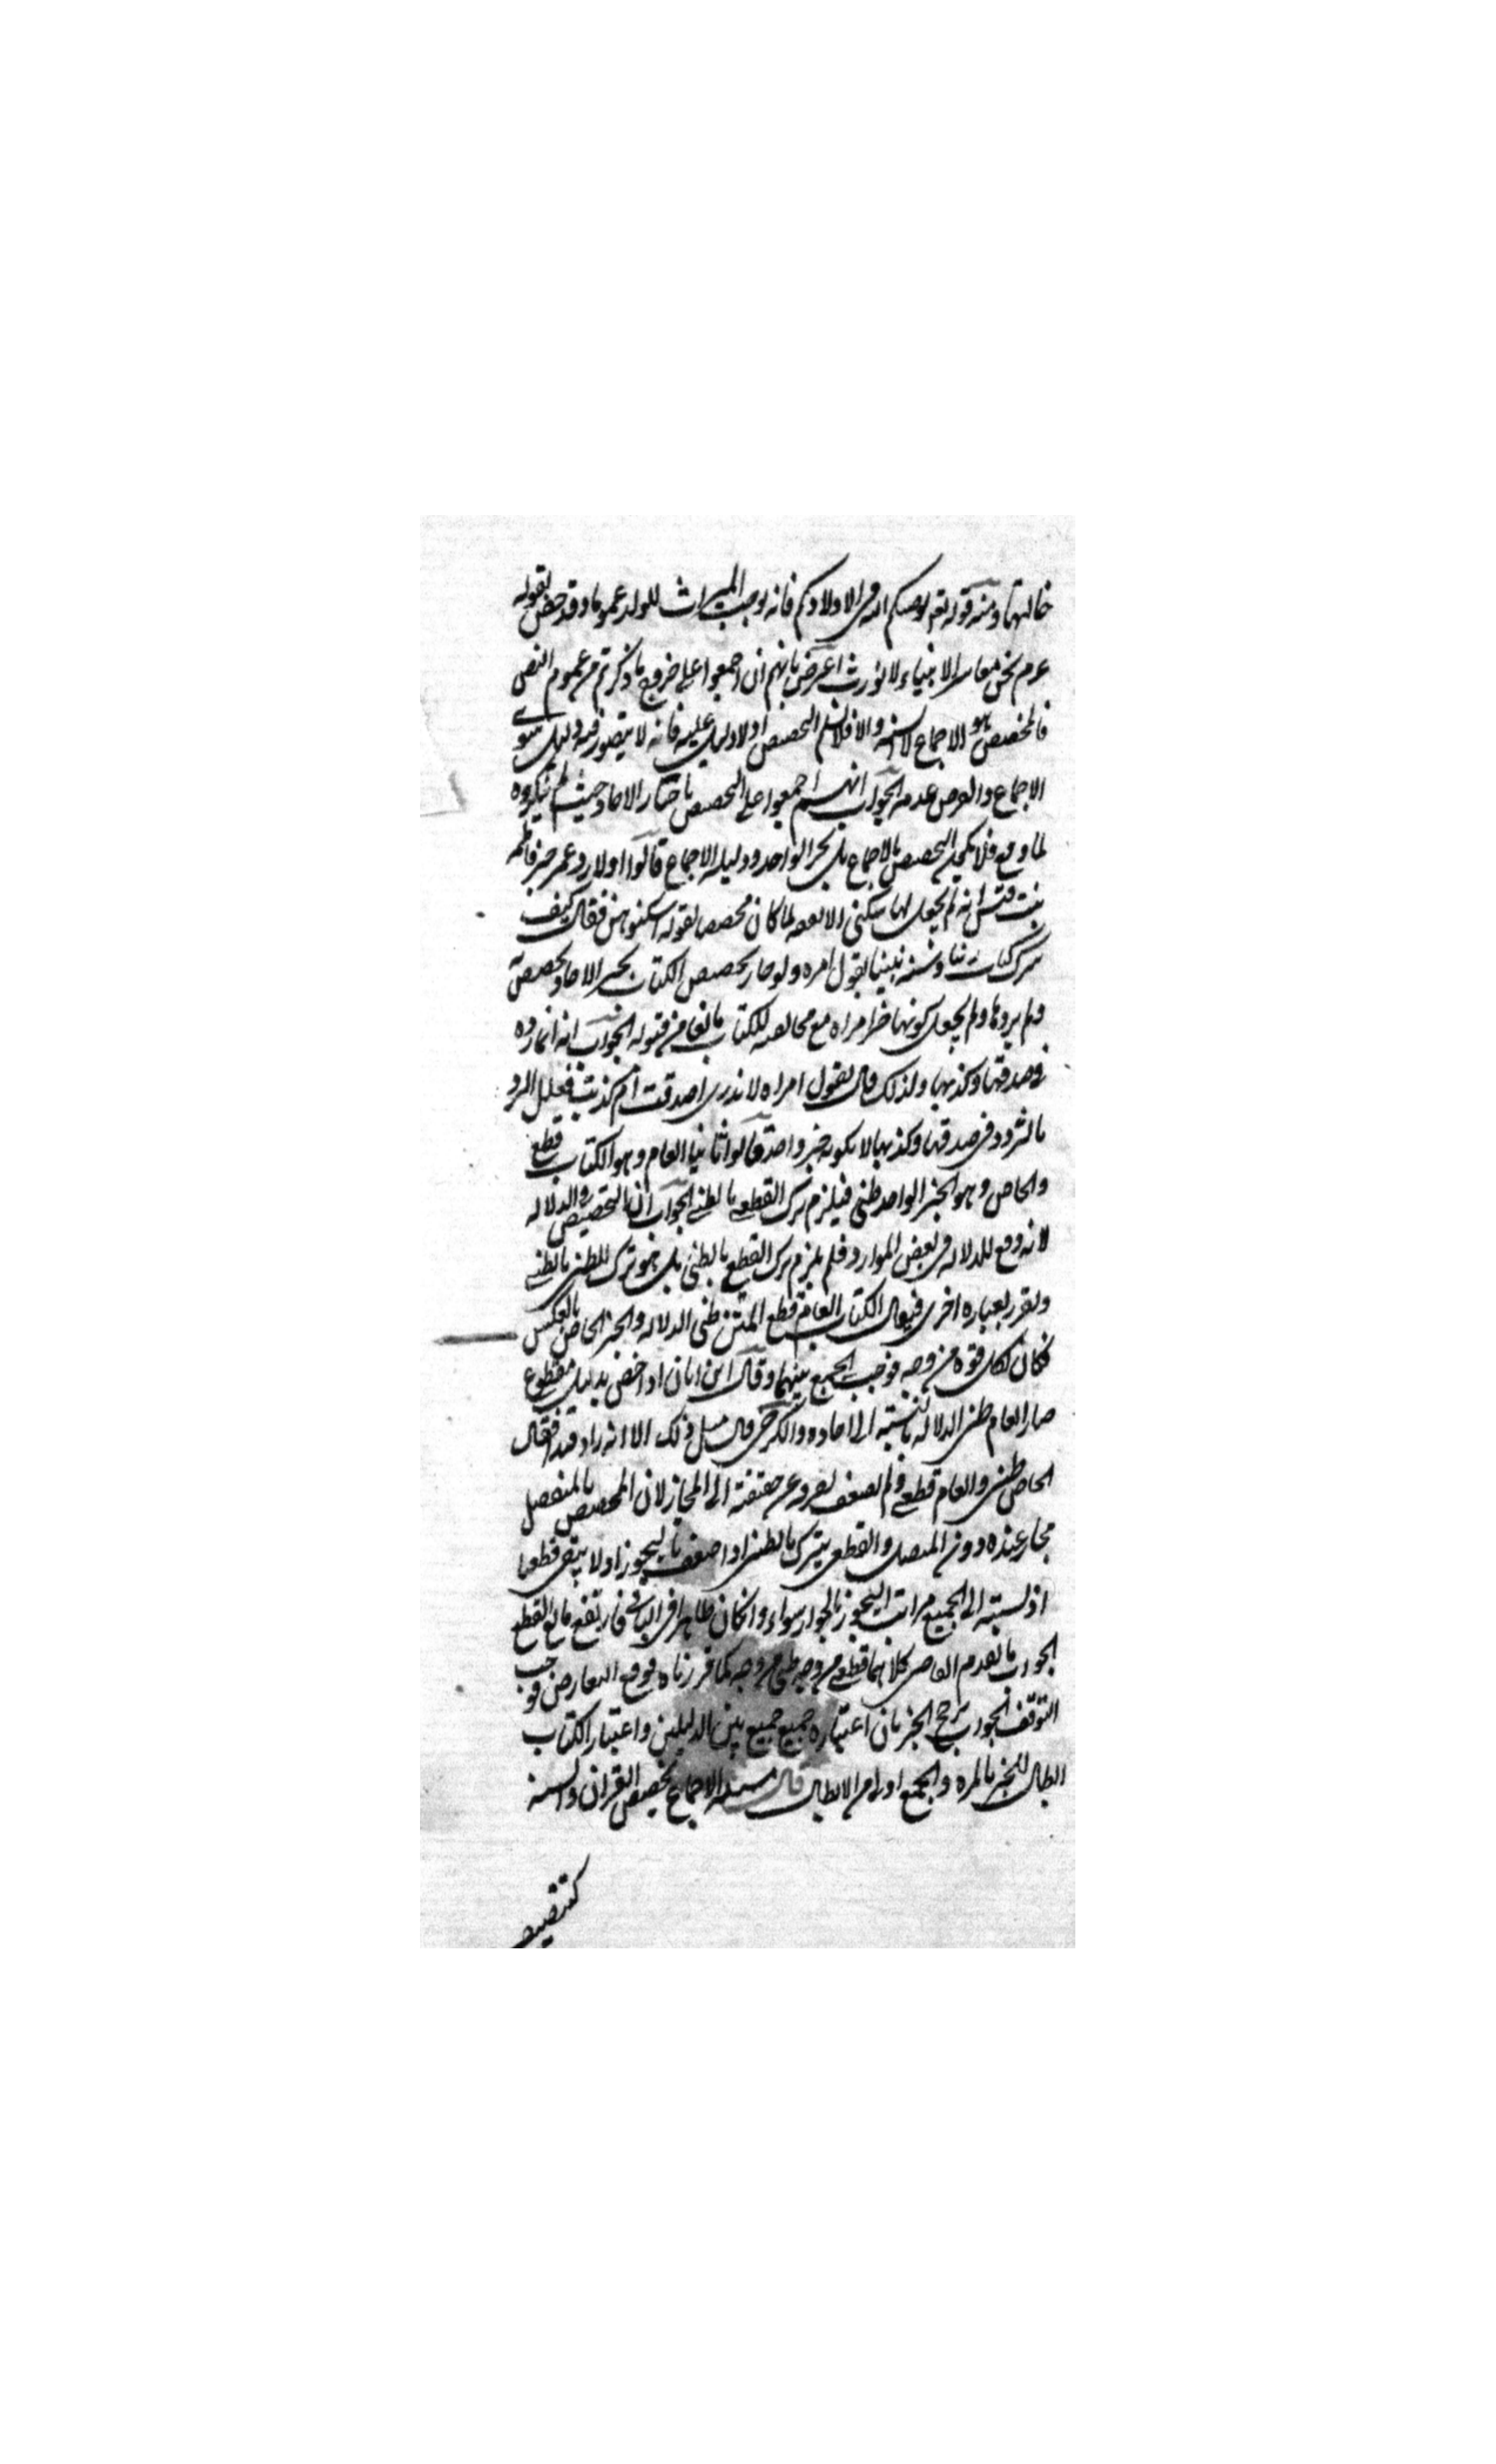 خالتها ومنه قوله تعـ يوصيكم الله فى الاولادكم فانه يوجب الميراث للولد عموما وقد خص بقوله
عـم نحن معاسر الانبياء لا نورث اعترض بانهم ان اجمعوا على خروج ما ذكرتم من عموم النص
فالمخصص هو الاجماع لا السنه والا فلا نسلم التحصيص اذ لا دليل عليه فانه لا يتصور فيه دليل سوى
الاجماع والفرض عدمه الجواب انهم اجمعوا على التحصيص باخبار الاحاد حيث لم ينكروه
لما وقع فلا يكون التحصيص بالاجماع بل بخبر الواحد ودليله الاجماع قالوا اولا رد عمر خبر فاطمه
بنت قيس انه لم يجعل لها سكنى ولا نفقه لما كان مخصصا لقوله اسكنوهن فقال كيف
نترك كتاب ربنا وسنه نبينا بقول امره ولو جاز تخصيص الكتاب بخبر الاحاد لخصص به
ولم يردها ولم يجعل كونها خبر امراه مع مخالفته للكتاب مانعا من قبوله الجواب انه انما رده
فى صدقها وكذبها ولذلك قال بقول امراه لا ندرى اصدقت ام كذبت فعلل الرد
بالتردد فى صدقها وكذبها لا بكونه خبر واحد قالوا ثانيا العام وهو الكتاب قطعى
والخاص وهو الخبر الواحد ظنى فيلزم ترك القطعى بالظنى الجواب ان التخصيص فى الدلاله
لانه دفع للدلاله فى بعض الموارد فلم يلزم ترك القطع بالظنى بل هو ترك للظنى بالظنى
ولنقرر بعباره اخرى فيقال الكتاب العام قطعى المتن ظنى الدلاله والخبر الخاص بالعكس
فكان لكل قوه من وجه فوجب الجمع بينهما وقال ابن ابان اذا خص بدليل مقطوع
صار العام ظنى الدلاله بالنسبته الى احاده والكرخى قال مثل ذلك الا انه زاد قيدا فقال
الخاص ظنى والعام قطعى ولم يضعف بصرفه عن حقيقته الى المجاز لان المخصص بالمنفصل
مجاز عنده دون المتصل والقطعى يترك بالظنى اذا ضعف بالتجوز اذ لا يبقى قطعيا
اذ نسبته الى الجميع مراتب التجوز بالجواز سواء وان كان ظاهرا فى الباقى فارتفع مانع القطع
الجواب ما تقدم القاضى كلاهما قطعى من وجه ظنى من وجه كما قررناه فوقع التعارض فوجب
التوقف الجواب يرجح الخبر بان اعتباره جميع جميع بين الدليلين واعتبار الكتاب
ابطال للخبر بالمره والجمع اولى من الابطال قال مسله الاجماع يخصص القران والسنه
كتنصيص